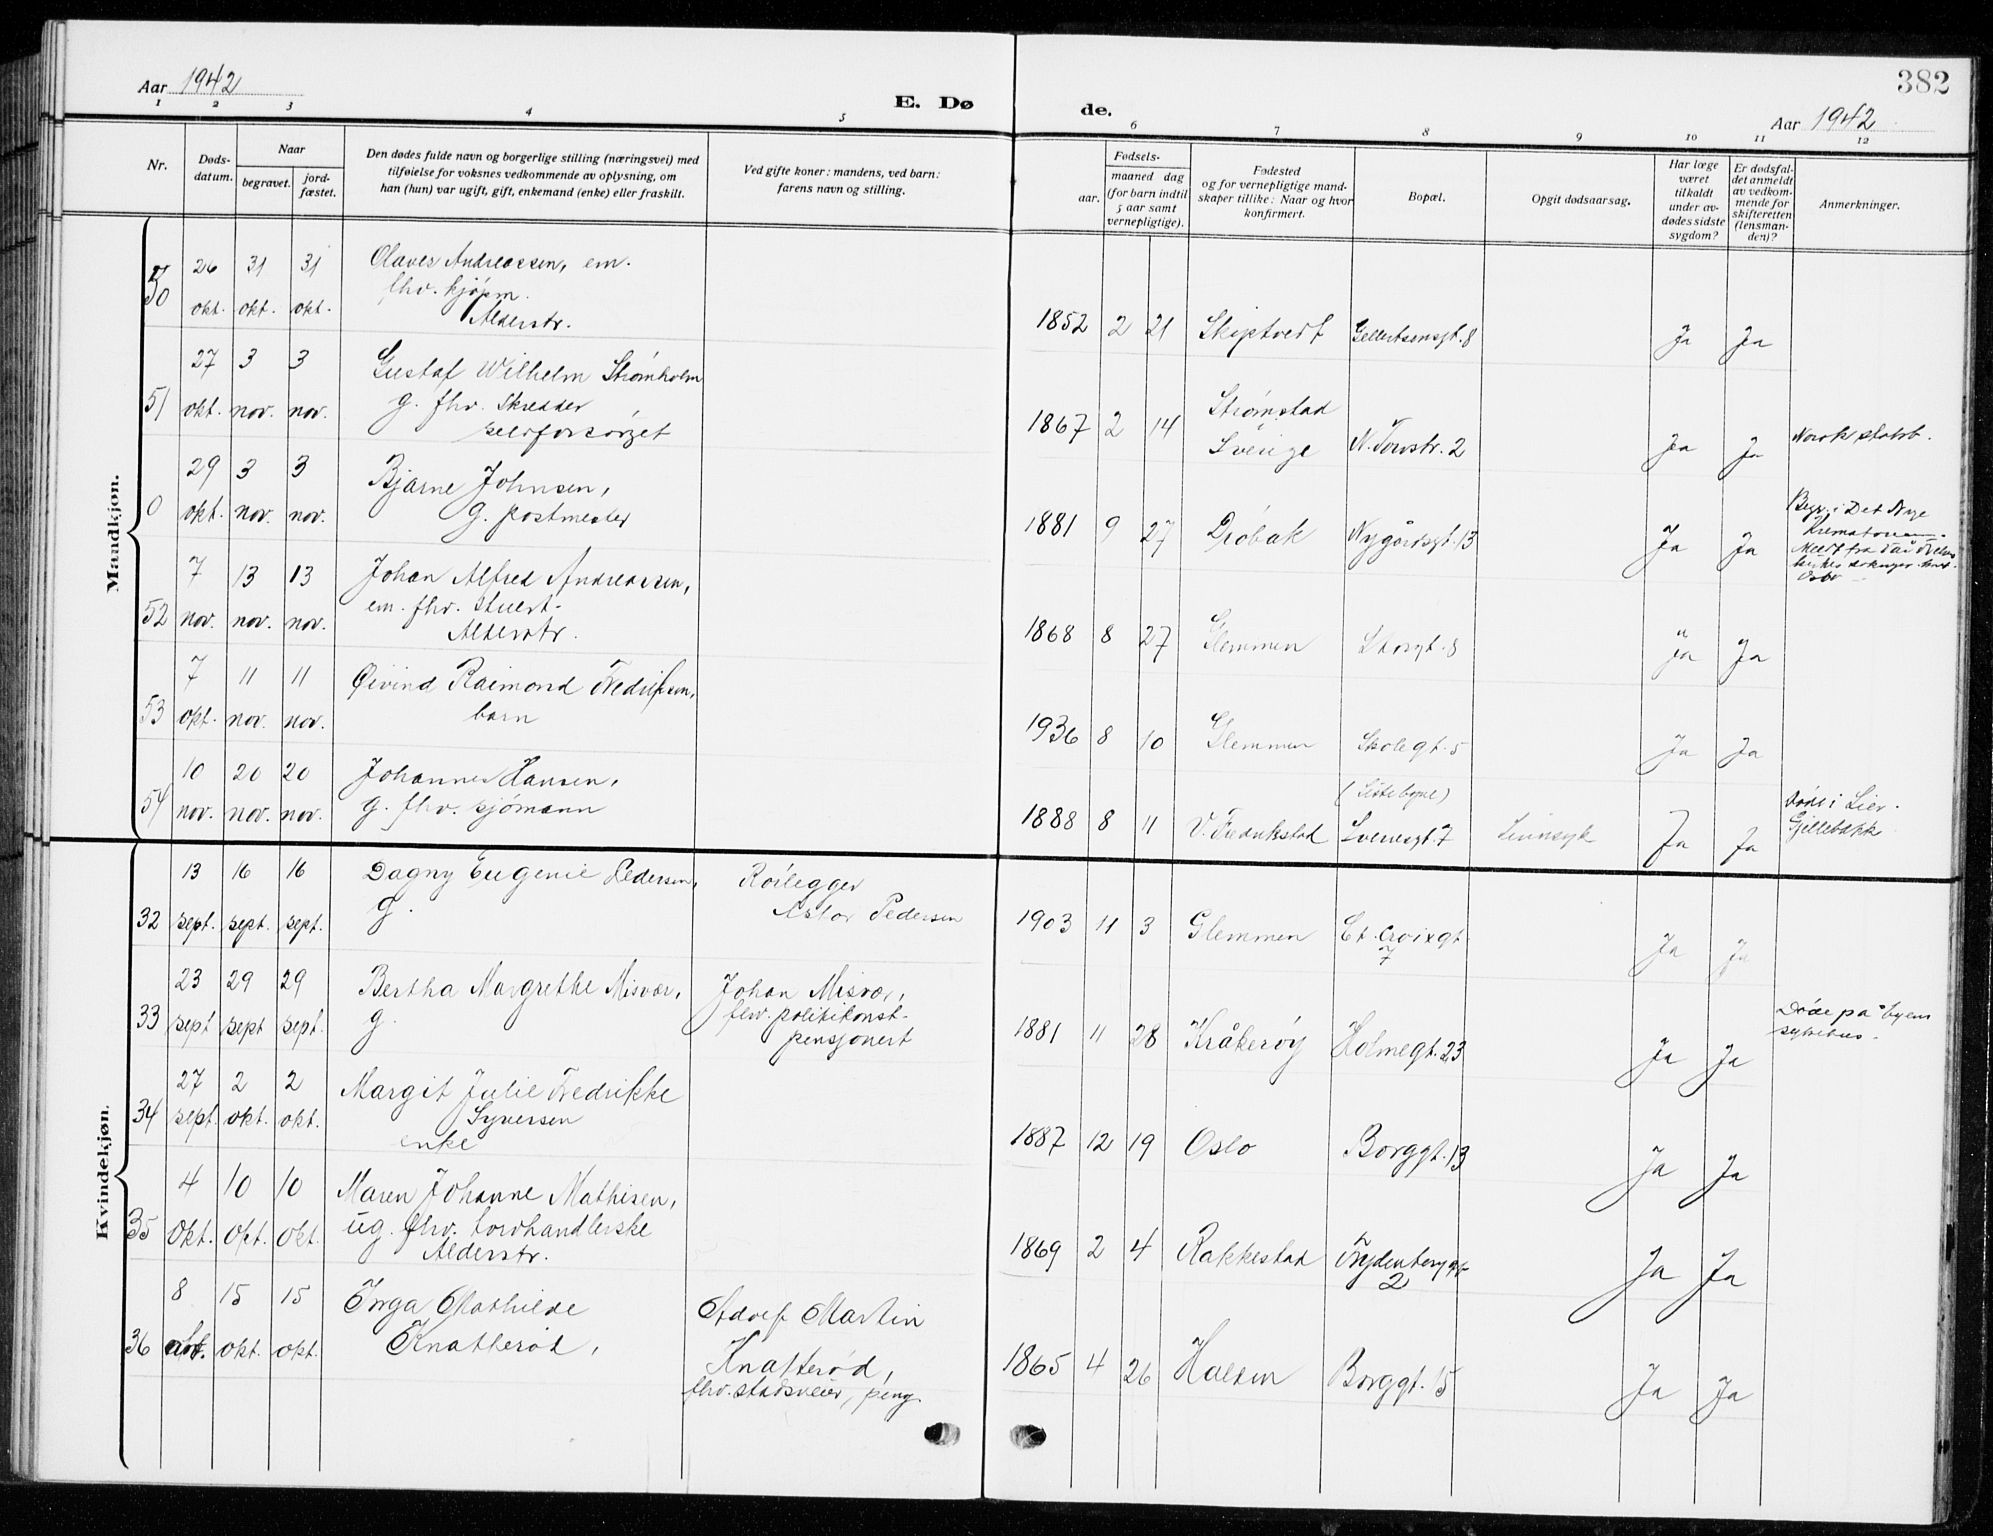 382
Aar 1942
E. Dø
de.
Aar 1942
1 2 3 4 5 6 7 8 9 10 11 12
Nr.
Døds-
datum.
Naar
begravet.
jord-
fæstet.
Den dødes fulde navn og borgerlige stilling (næringsvei) med
tilføielse for voksnes vedkommende av oplysning, om
han (hun) var ugift, gift, enkemand (enke) eller fraskilt.
Ved gifte koner: mandens, ved barn:
farens navn og stilling.
Fødsels-
aar.
maaned dag
(for barn indtil
5 aar samt
vernepligtige).
Fødested
og for vernepligtige mand-
skaper tillike: Naar og hvor
konfirmert.
Bopæl.
Opgit dødsaarsag.
Har læge
været
tilkaldt
under av-
dødes sidste
sygdom?
Er dødsfal-
det anmeldt
av vedkom-
mende for
skifteretten
(lensman-
den)?
Anmerkninger.
Mandkjøn.
50
26 31 31
okt. okt. okt.
Olaves Andreassen, em.
fhv. kjøpm.
Alderstr.
1852 2 21 Skiptvedt Gellertsensgt. 8 Ja Ja
51
27 3 3
okt. nov. nov.
Gustaf Wilhelm Strømholm
g. fhv. skredder
selvforsørget
1867 2 14 Strømstad
Sverige N. Torvstr. 2 Ja Ja Norsk statsb.
0
29 3 3
okt. nov. nov.
Bjarne Johnsen,
g. postmester
1881 9 27 Drøbak Nygårdsgt. 13 Ja Ja
Begr. i Det Nye
Krematorium.
Meldt fra Vår Frelsers
Oslo
52
7 13 13
nov. nov. nov.
Johan Alfred Andreassen,
em. fhv. stuert-
Alderstr.
1868 8 27 Glemmen Storgt. 8 Ja Ja
53
7 11 11
okt. nov. nov.
Øivind Raimond Fredriksen,
barn
1936 8 10 Glemmen Skolegt. 5 Ja Ja
54
10 20 20
nov. nov. nov.
Johannes Hansen,
g. fhv. sjömann
1888 8 11 V. Fredrikstad
(Siste bopæl)
Sverresgt. 7 Sinnsyk Ja Ja
Döde i Lier.
Gjellebækk
Kvindekjøn.
32
13 16 16
sept. sept. sept.
Dagny Eugenie Pedersen,
g.
Rörlegger
Astor Pedersen
1903 11 3 Glemmen St. Croixgt.
7 Ja Ja
33
23 29 29
sept sept sept.
Bertha Margrethe Misvær,
g.
Johan Misvær,
fhv. politikonst-
pensjonert
1881 11 28 Kråkerøy Holmegt. 23 Ja Ja
Döde på byens
sykehus.
34
27 2 2
sept. okt. okt.
Margit Julie Fredrikke
Syversen
enke
1887 12 19 Oslo Borggt. 13 Ja Ja
35
4 10 10
Okt. Okt. Okt.
Maren Johanne Mathisen,
ug. fhv. torvhandlerske
Alderstr.
1869 2 4 Rakkestad Frydenberggt
2 Ja Ja
36
8 15 15
okt. okt. okt.
Inga Mathilde
Knatterød,
Adolf Martin
Knatterød,
fhv. stadsveier, pens.
1865 4 26 Halden Borggt. 15 Ja Ja